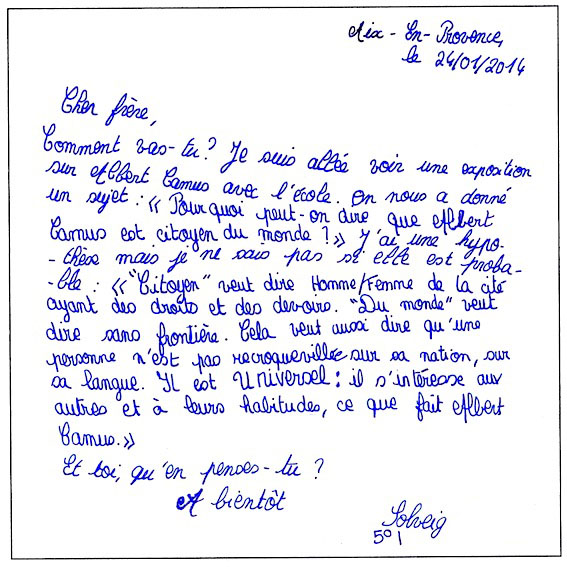 Aix-En-Provence,
le 24/01/2014
Cher frère,
Comment vas-tu? Je suis allée voir une exposition
sur Albert Camus avec l'école. On nous a donné
un sujet : « Pourquoi peut-on dire que Albert
Camus est citoyen du monde ? » J'ai une hypo-
-thèse mais je ne sais pas si elle est proba-
-ble : « "Citoyen" veut dire Homme/Femme de la cité
ayant des droits et des devoirs. "Du monde" veut
dire sans frontière. Cela veut aussi dire qu'une
personne n'est pas recroquevillée sur sa nation, sur
sa langue. Il est Universel : il s'intéresse aux
autres et à leurs habitudes, ce que fait Albert
Camus. »
Et toi, qu'en penses-tu ?
A bientôt
Solveig
5° 1